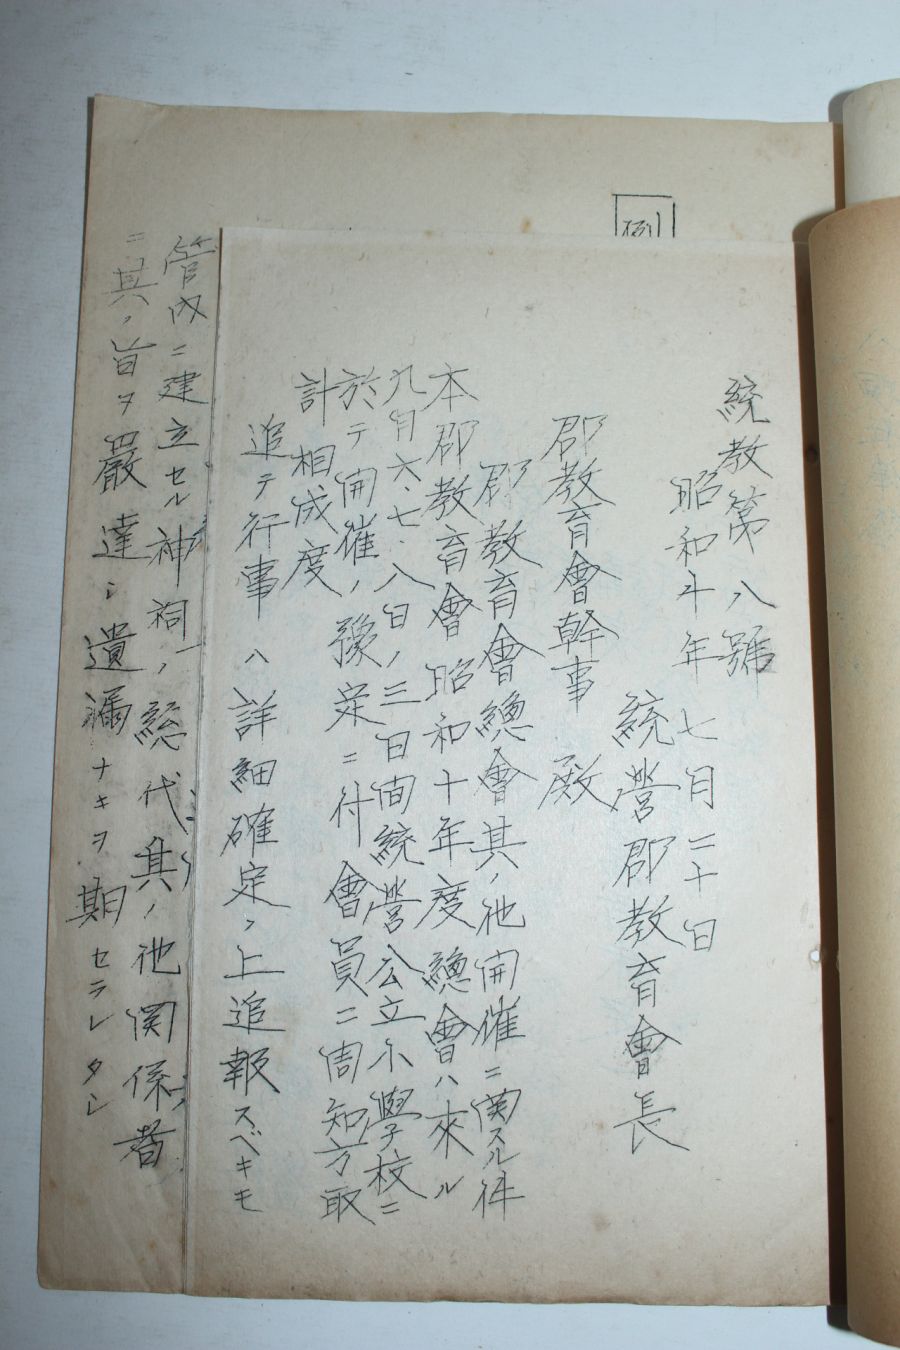 例
統教第八號
昭和十年七月二十日
統營郡教育會長
郡教育會幹事 殿
郡教育會總會其ノ他開催ニ関スル件
本郡教育會昭和十年度總會ハ來ル
九月六、七、八日ノ三日间統營公立小學校ニ
於テ開催ノ豫定ニ付會員ニ周知方取
計相成度
追テ行事ハ詳細確定ノ上追報スベキモ
管内ニ建立セル神祠ノ総代其ノ他関係者
ニ其ノ旨ヲ嚴達シ遺漏ナキヲ期セラレタシ